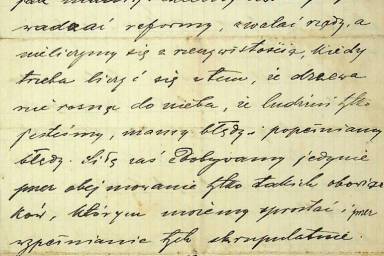 wadzać reformy, zwalać rządy, a
nieliczymy się z rzeczywistością, kiedy
trzeba liczyć się z tem, że drzewa
nie rosną do nieba, że ludźmi tylko
jesteśmy, mamy błędy i popełniamy
błędy. Siłę zaś zdobywamy jedynie
przez obejmowanie tylko takich obowiąz
ków, którym możemy sprostać i przez
wypełnianie tych skrupulatnie.